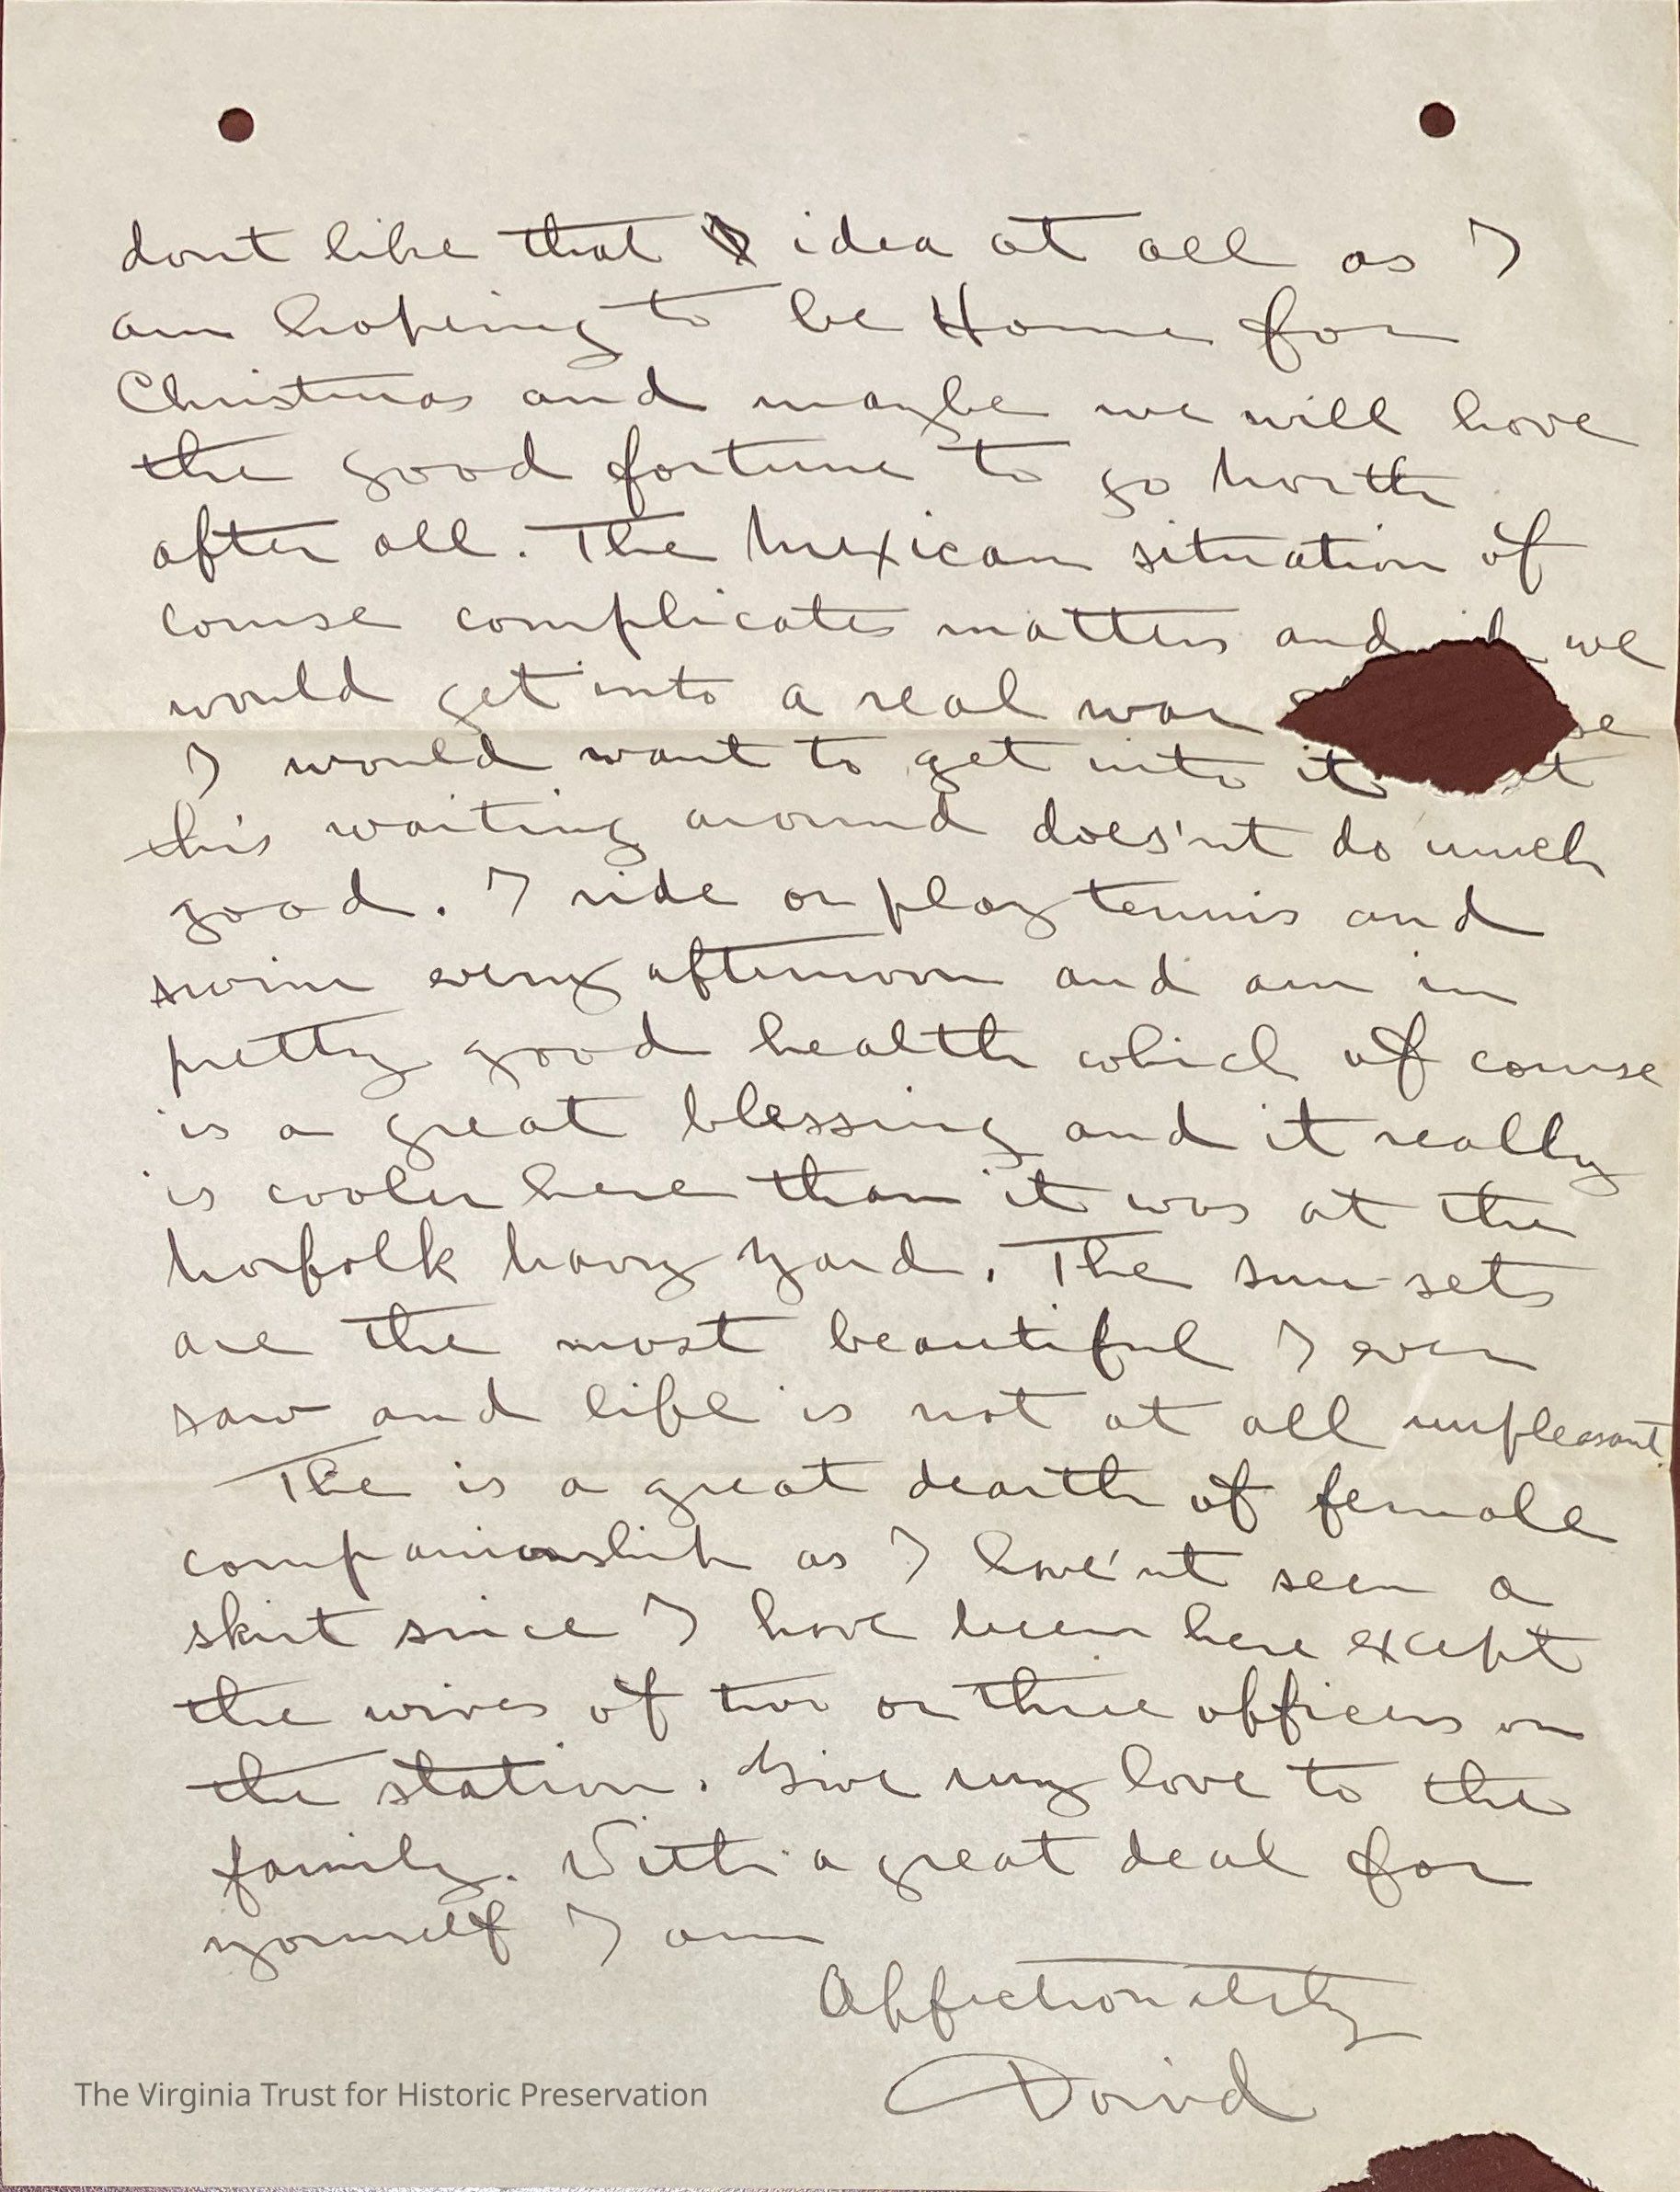 dont like that idea at all as I
am hopeing to be Home for
Christmas and maybe we will have
the good fortune to go North
after all. The Mexican situation of
course complicates matters and we
would get into a real war
I would want to get into it
this waiting around does'nt do much
good. I ride or play tennis and
swim every afternoon and am in
pretty good health which of course
is a great blessing and it really
is cooler here than it was at the
Norfolk Navy Yard. The sun-sets
are the most beautiful I ever
saw and life is not at all unpleasant.
The is a great dearth of female
companionship as I have'nt seen a
skirt since I have been here except
the wives of two or three officers on
the station. Give my love to the
family. With a great deal for
yourself I am
Affectionately
David
The Virginia Trust for Historic Preservation